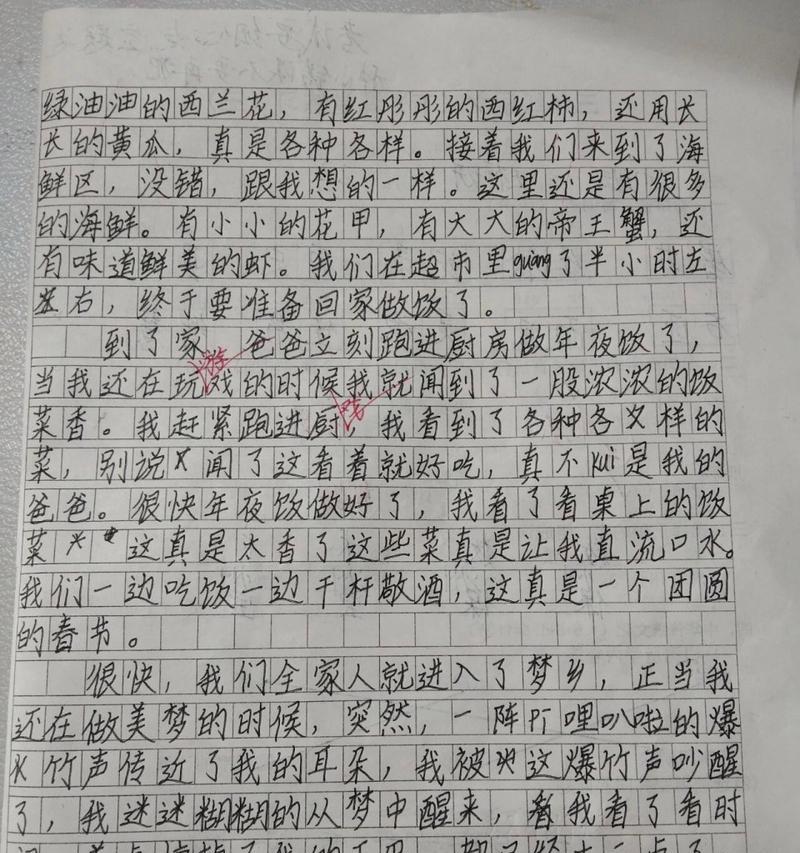 绿油油的西兰花，有红彤彤的西红柿，还用长
长的黄瓜，真是各种各样。接着我们来到了海
鲜区，没错，跟我想的一样。这里还是有很多
的海鲜。有小小的花甲，有大大的帝王蟹，还
有味道鲜美的虾。我们在超市里guàng了半小时左
右，终于要准备回家做饭了。
到了家，爸爸立刻跑进厨房做年夜饭了，
当我还在玩游戏的时候我就闻到了一股浓浓的饭
菜香。我赶紧跑进厨房，我看到了各种各样的
菜，别说闻了这看着就好吃，真不kuì是我的
爸爸。很快年夜饭做好了，我看了看桌上的饭
菜这真是太香了这些菜真是让我直流口水。
我们一边吃饭一边干杆敬酒，这真是一个团圆
的春节。
很快，我们全家人就进入了梦乡，正当我
还在做美梦的时候，突然，一阵pī哩叭啦的爆
竹声传近了我的耳朵，我被这爆竹声吵醒
了，我迷迷糊糊的从梦中醒来，我看了看时